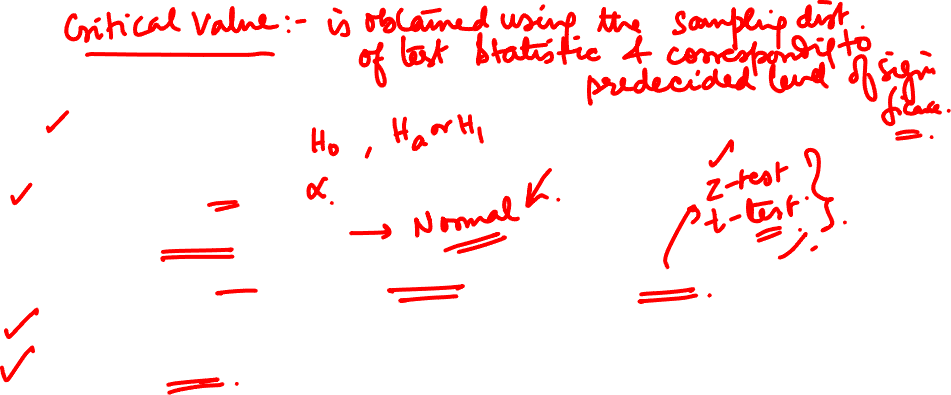 Critical Value:- is obtained using the sampling dist.
of test statistic & corresponding to
predecided level of signi
ficance.
H₀ , Hₐ or H₁
α.
→ Normal
z-test
t-test.